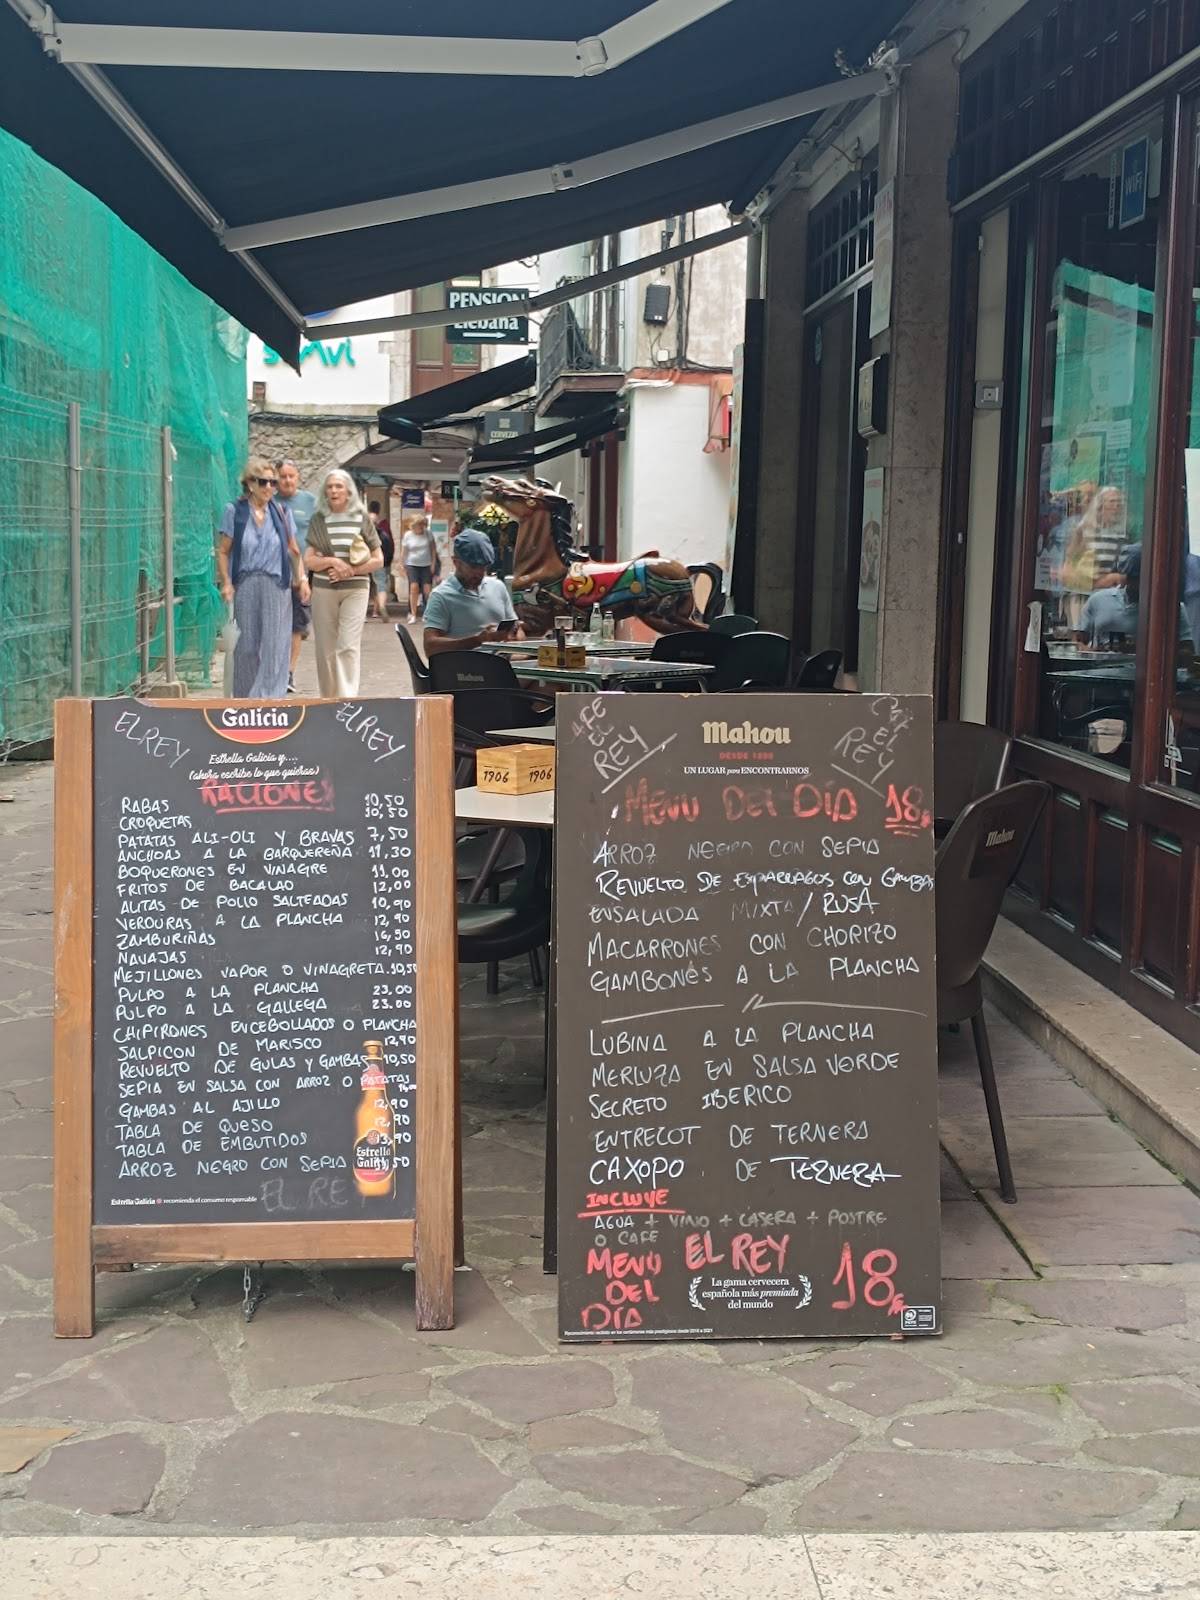 WiFi
PENSION
Liébana
CERVEZAS
EL REY
Galicia
EL REY
Estrella Galicia y....
(ahora escribe lo que quieras)
RACIONES
RABAS 10,50
CROQUETAS 10,50
PATATAS ALI-OLI Y BRAVAS 7,50
ANCHOAS A LA BARQUEREÑA 11,30
BOQUERONES EN VINAGRE 11,00
FRITOS DE BACALAO 12,00
ALITAS DE POLLO SALTEADAS 10,90
VERDURAS A LA PLANCHA 12,90
ZAMBURIÑAS 16,50
NAVAJAS 12,90
MEJILLONES VAPOR O VINAGRETA 10,50
PULPO A LA PLANCHA 23.00
PULPO A LA GALLEGA 23.00
CHIPIRONES ENCEBOLLADOS O PLANCHA
SALPICON DE MARISCO 12,90
REVUELTO DE GULAS Y GAMBAS 10,50
SEPIA EN SALSA CON ARROZ O PATATAS
GAMBAS AL AJILLO 12,90
TABLA DE QUESO 12,90
TABLA DE EMBUTIDOS 13,90
ARROZ NEGRO CON SEPIA
Estrella
Galicia
Estrella Galicia recomienda el consumo responsable
EL REY
1906 1906
CAFE
EL
REY
Mahou
DESDE 1890
UN LUGAR para ENCONTRARNOS
CAFE
EL
REY
MENU DEL DÍA 18€
ARROZ NEGRO CON SEPIA
REVUELTO DE ESPARRAGOS CON GAMBAS
ENSALADA MIXTA / RUSA
MACARRONES CON CHORIZO
GAMBONES A LA PLANCHA
LUBINA A LA PLANCHA
MERLUZA EN SALSA VERDE
SECRETO IBERICO
ENTRECOT DE TERNERA
CAXOPO DE TERNERA
INCLUYE
AGUA + VINO + CASERA + POSTRE
O CAFE
MENU
DEL
DÍA
EL REY
La gama cervecera
española más premiada
del mundo
18€
Mahou
Mahou